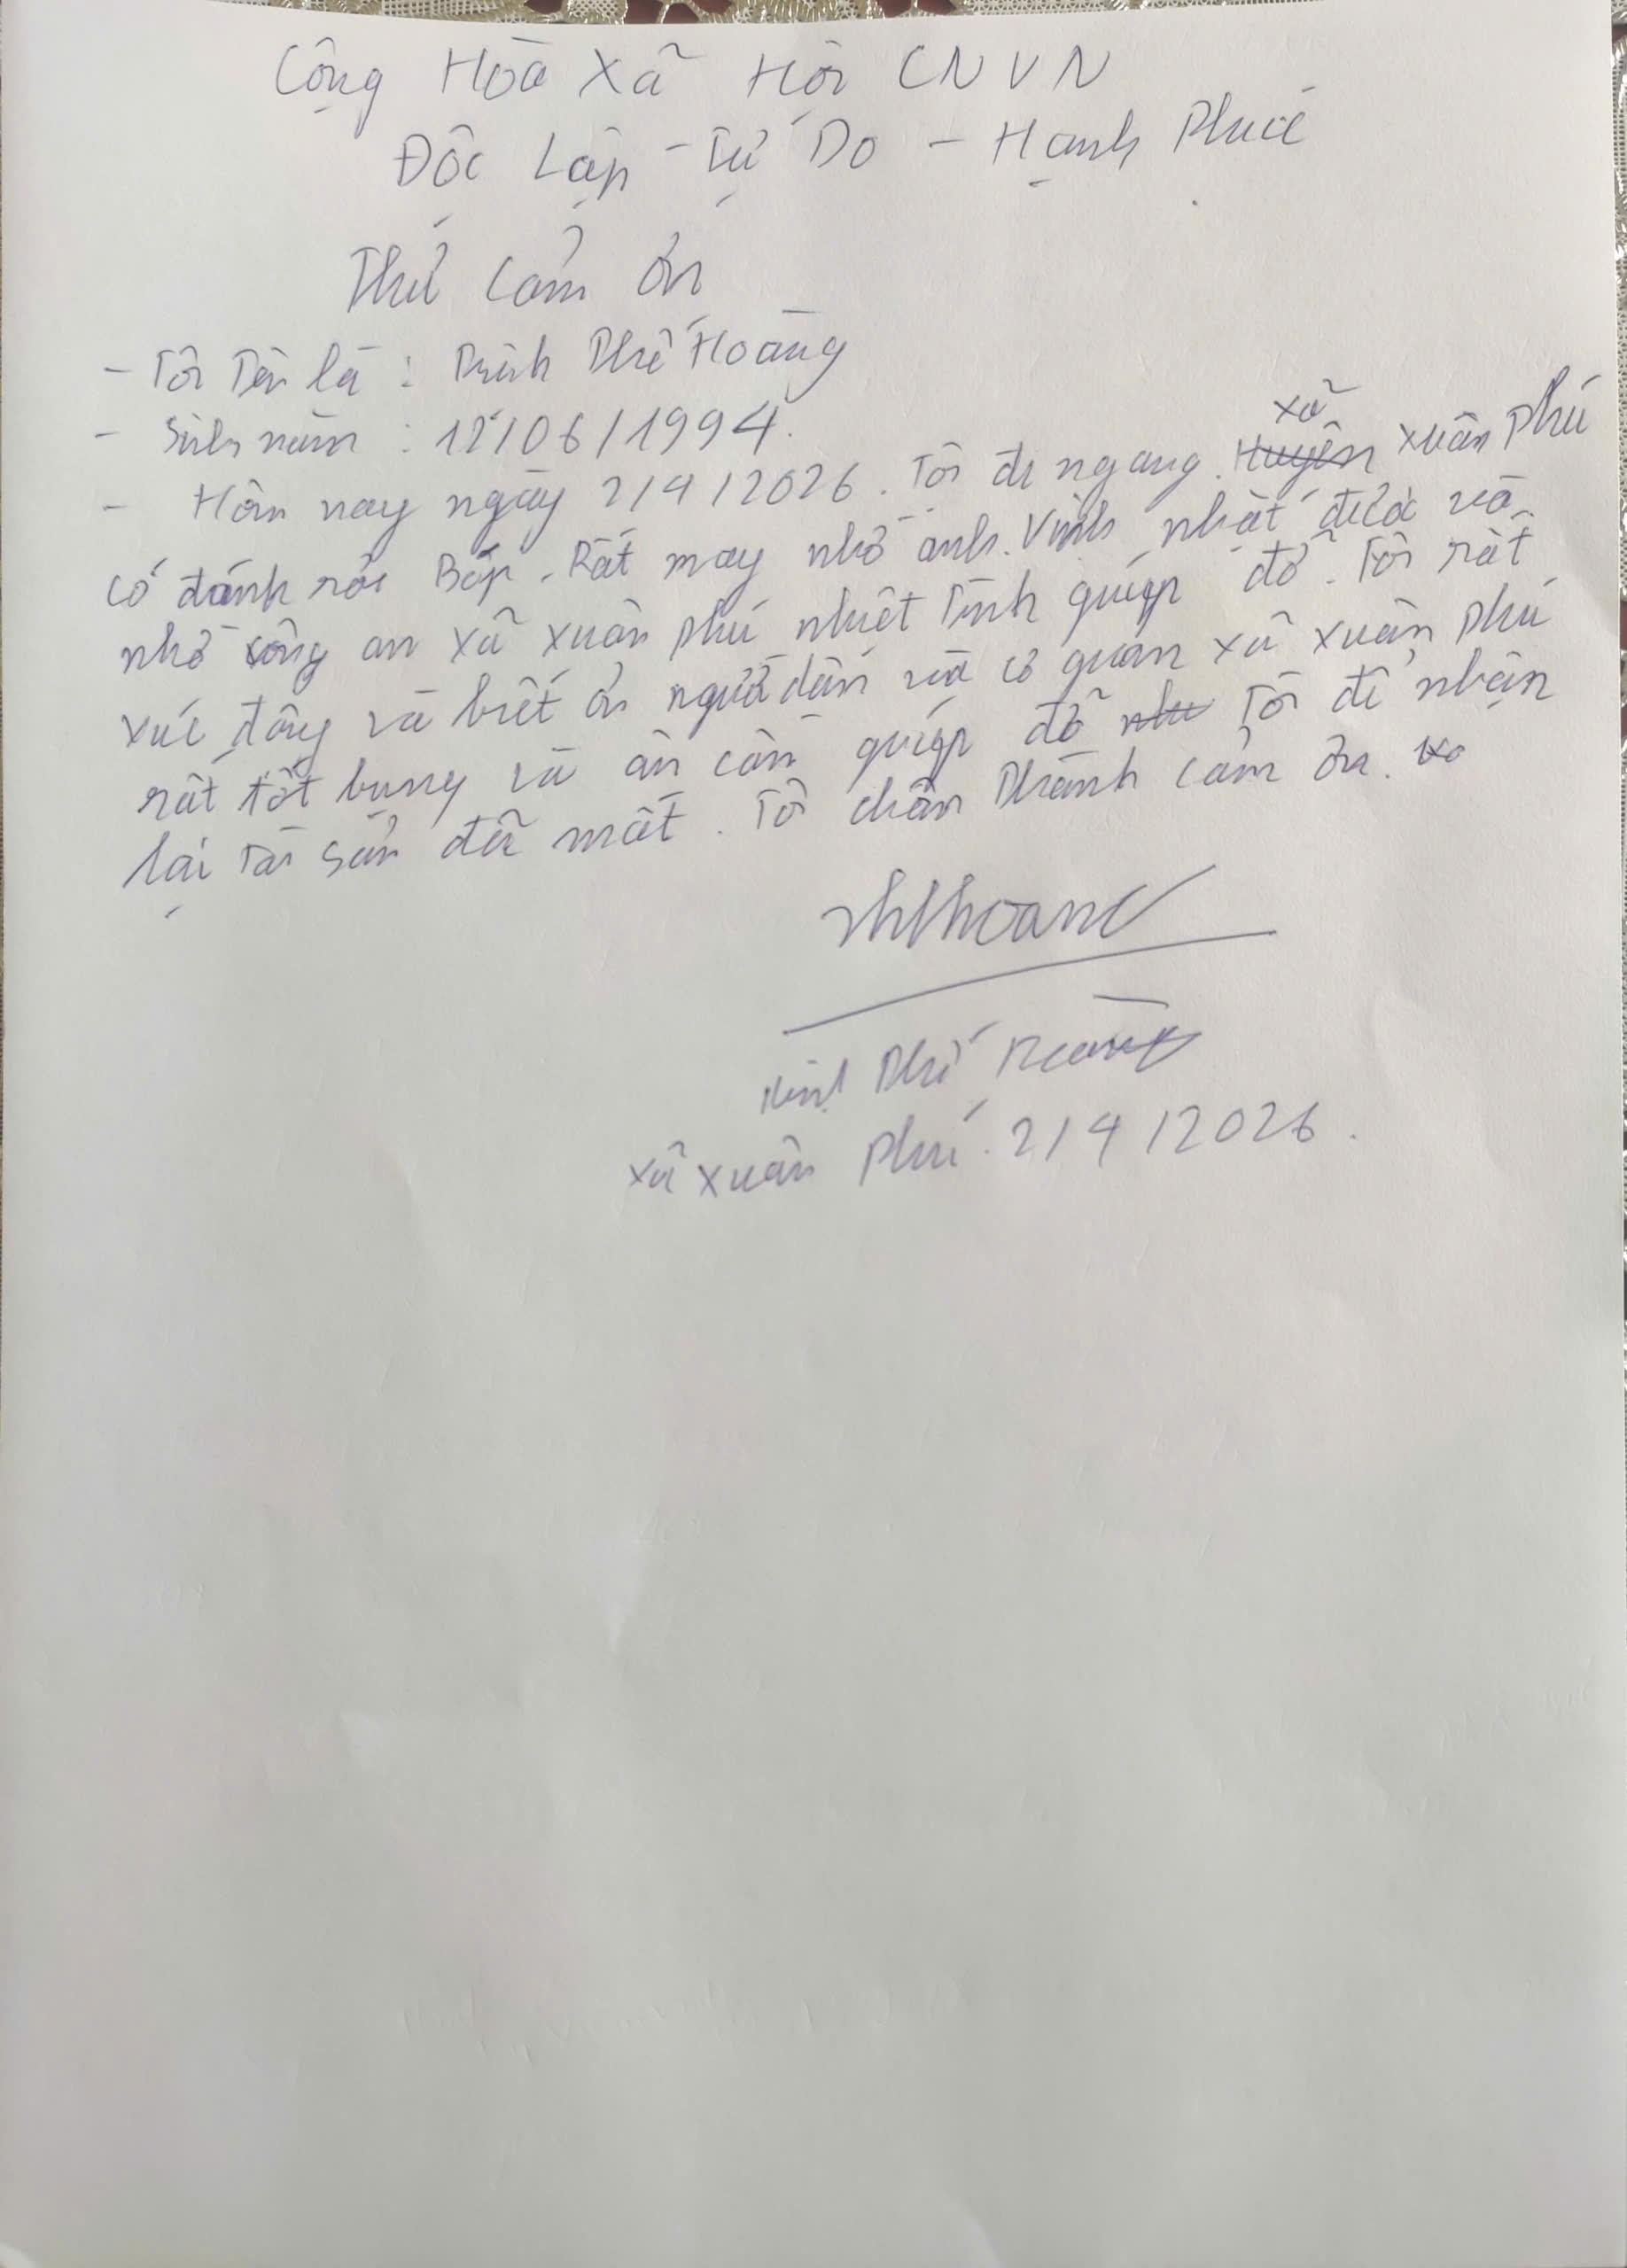 Cộng Hòa Xã Hội CNVN
Độc Lập - Tự Do - Hạnh Phúc
Thư Cảm Ơn
- Tôi Tên là : Trịnh Thế Hoàng
- Sinh năm : /06/1994.
- Hôm nay ngày 2/4/2026. Tôi đi ngang xã Xuân Phú
có đánh rơi Bóp. Rất may nhờ anh Vinh nhặt được và
nhờ công an xã Xuân Phú nhiệt tình giúp đỡ. Tôi rất
xúc động và biết ơn người dân và cơ quan xã Xuân Phú
rất tốt bụng và ân cần giúp đỡ Tôi để nhận
lại Tài sản đã mất. Tôi chân Thành cảm ơn.
Trịnh Thế Hoàng
xã Xuân Phú. 2/4/2026.